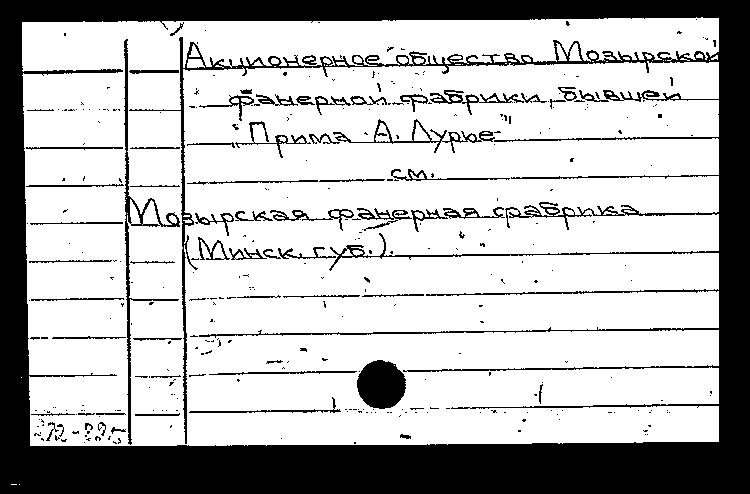 Акционерное общество Мозырской
фанерной фабрики, бывшей
"Прима А. Лурье"
см.
Мозырская фанерная фабрика
(Минск. губ.).